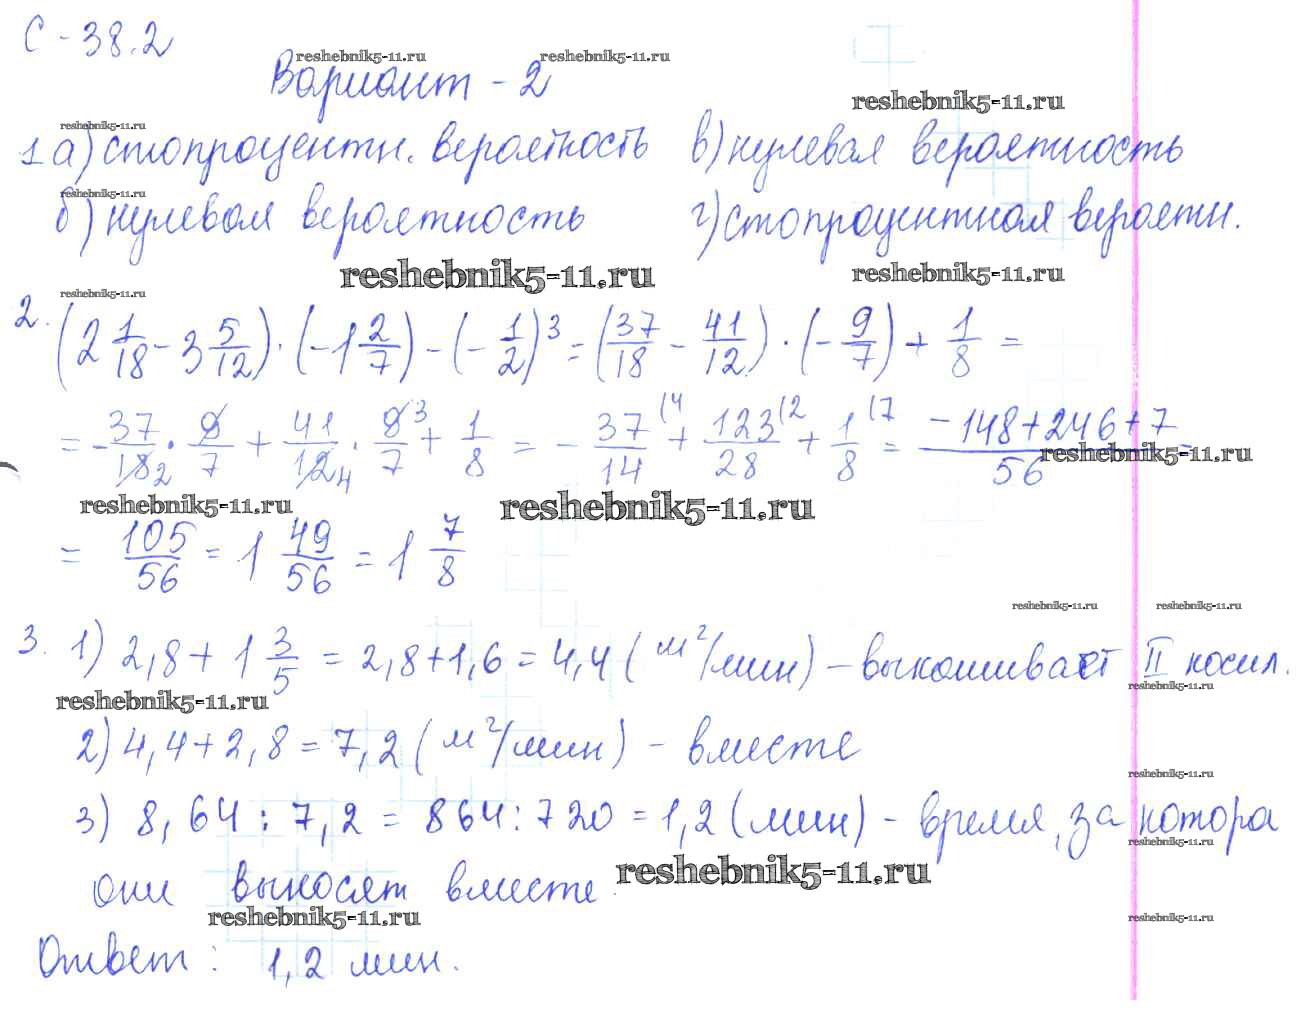 С - 38.2
reshebnik5-11.ru reshebnik5-11.ru
Вариант - 2
reshebnik5-11.ru
reshebnik5-11.ru
1 а) стопроцентн. вероятность в) нулевая вероятность
reshebnik5-11.ru
б) нулевая вероятность г) стопроцентная вероятн.
reshebnik5-11.ru reshebnik5-11.ru
reshebnik5-11.ru
2. (2 1/18 - 3 5/12) · (-1 2/7) - (- 1/2)³ = (37/18 - 41/12) · (- 9/7) + 1/8 =
= - 37/18 2 · 9/7 + 41/12 4 · 9 3/7 + 1/8 = - 37(4/14 + 123(2/28 + 1(7/8 = -148+246+7/56 =
reshebnik5-11.ru
reshebnik5-11.ru reshebnik5-11.ru
= 105/56 = 1 49/56 = 1 7/8
reshebnik5-11.ru reshebnik5-11.ru
3. 1) 2,8 + 1 3/5 = 2,8+1,6 = 4,4 (м²/мин) - выкашивает II косил.
reshebnik5-11.ru reshebnik5-11.ru
2) 4,4+2,8 = 7,2 (м²/мин) - вместе
reshebnik5-11.ru
3) 8,64 : 7,2 = 864 : 720 = 1,2 (мин) - время, за котора
reshebnik5-11.ru
они выкосят вместе
reshebnik5-11.ru
reshebnik5-11.ru reshebnik5-11.ru
Ответ : 1,2 мин.